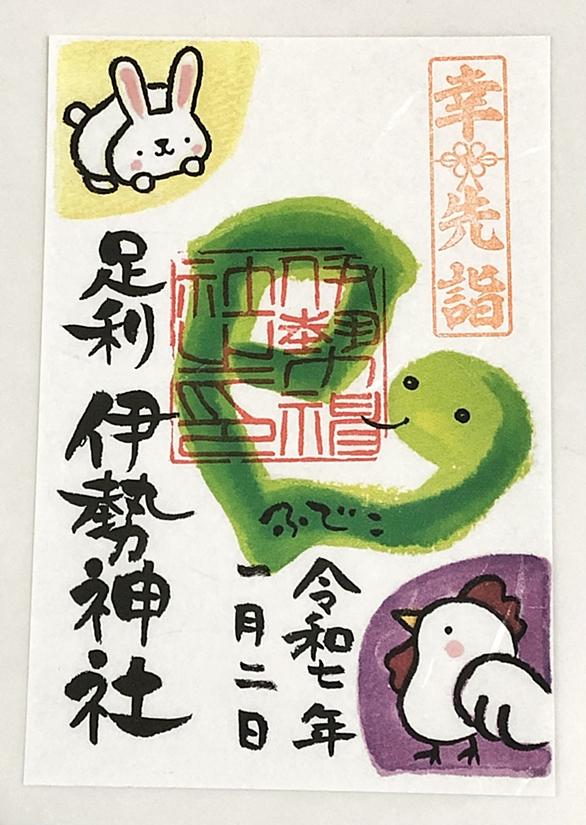 幸先詣
伊勢神社之印
ふでこ
令和七年
一月二日
足利 伊勢神社